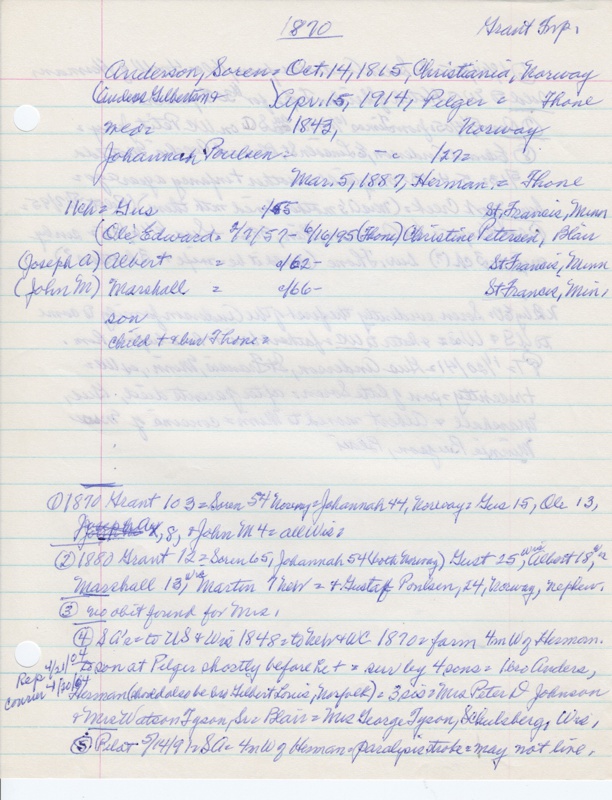 1870 Grant Twp.
Anderson, Soren = Oct. 14, 1815, Christiania, Norway
(Anders Gilbertson + ) Apr. 15, 1914, Pilger = Thone
near 1843, Norway
Johannah Poulsen = - c. 1827 =
Mar. 5, 1887, Herman = Thone
11ch = Gus c/55 St. Francis, Minn
(Ole Edward = 2/7/57 - 6/16/95 (Thone) Christine Petersen, Blair
(Joseph A) Albert = c/62 - St Francis, Minn
(John M) Marshall = c/66 - St Francis, Min.
son
child + + bur Thone =
① 1870 Grant 103 = Soren 54 Norway = Johannah 44, Norway = Gus 15, Ole 13,
Joseph A, 8, + John M 4 = all Wis =
② 1880 Grant 12 = Soren 65, Johannah 54 (both Norway) Gust 25 Wis, Albert 18,
Marshall 13, Wis Martin 7 New = + Gustaf Poulsen, 24, Norway, nephew.
③ no obit found for Mrs.
④ SA's = to US + Wis 1848 = to New + WC 1870 = farm 4m W of Herman.
Rep 4/21/04 to son at Pilger shortly before he + = sur by 4 sons = 1 bro Anders,
Courier 4/30/04 Herman ( he bro Gilbert Louis, Norfolk) + 3 sis = Mrs Peter D Johnson
+ Mrs Watson Tyson, Sr = Blair = Mrs George Tyson, Schulsberg, Wis.
⑤ Pilot 5/14/9 SA = 4m W of Herman = paralysis stroke = may not live.